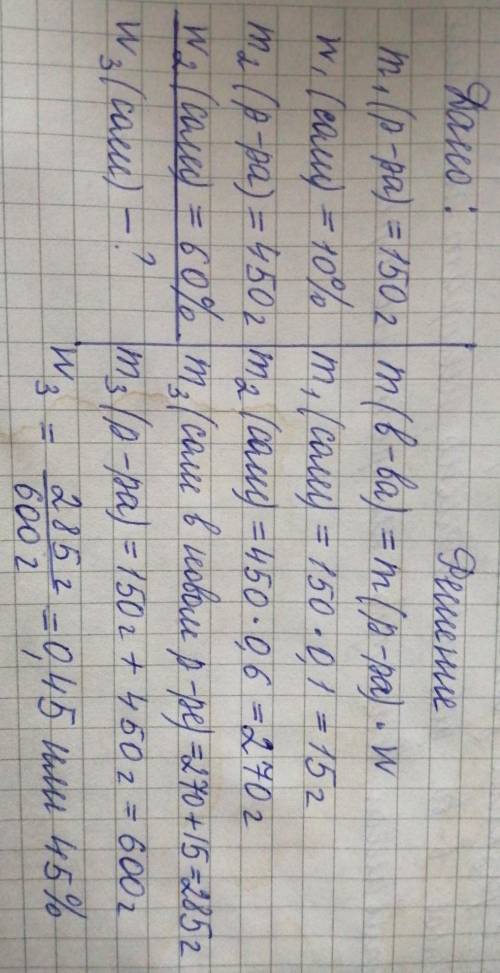 Дано:
m₁ (р-ра) = 150 г
w₁ (соли) = 10%
m₂ (р-ра) = 450 г
w₂ (соли) = 60%
w₃ (соли) - ?
Решение
m (в-ва) = m (р-ра) · w
m₁ (соли) = 150 · 0,1 = 15 г
m₂ (соли) = 450 · 0,6 = 270 г
m₃ (соли в новом р-ре) = 270 + 15 = 285 г
m₃ (р-ра) = 150 г + 450 г = 600 г
w₃ = 285 г / 600 г = 0,45 или 45%